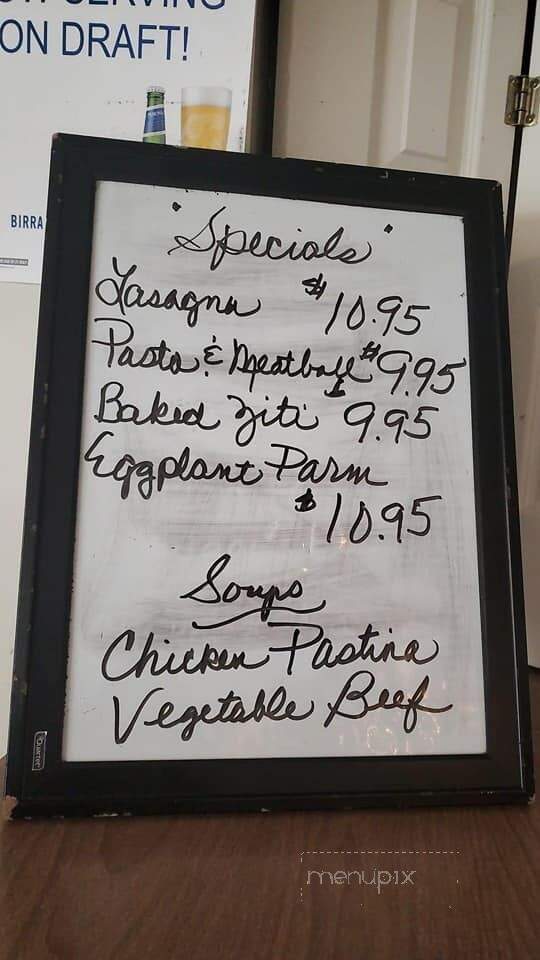 ON DRAFT!
BIRRA
"Specials"
Lasagna $10.95
Pasta & Meatball $9.95
Baked Ziti 9.95
Eggplant Parm
$10.95
Soups
Chicken Pastina
Vegetable Beef
QUARTET
menupix